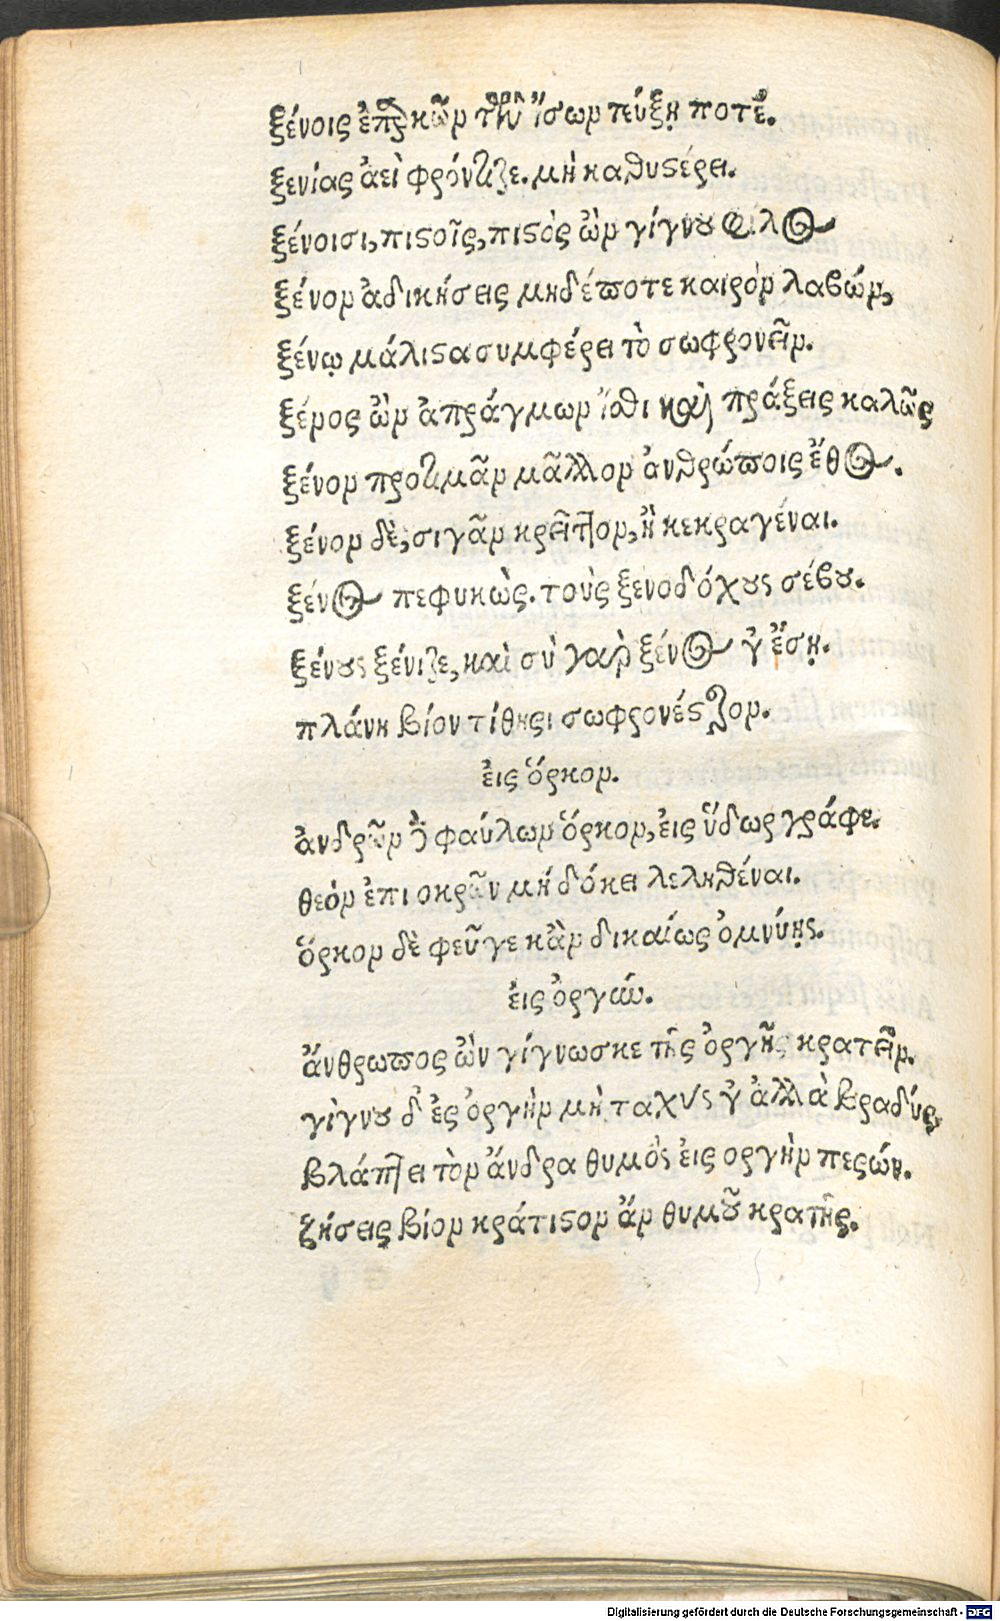 ξένοις ἐπαρκῶν τῶν ἴσων τεύξῃ ποτέ.
ξενίας ἀεὶ φρόντιζε. μὴ καθυστέρει.
ξένοισι, πιστοῖς, πιστὸς ὢν γίγνου φίλος
ξένον ἀδικήσεις μηδέποτε καιρὸν λαβών,
ξένῳ μάλιστα συμφέρει τὸ σωφρονεῖν.
ξένος ὢν ἀπράγμων ἴσθι καὶ πράξεις καλῶς
ξένον προτιμᾶν μᾶλλον ἀνθρώποις ἔθος.
ξένον δὲ, σιγᾶν κρεῖττον, ἢ κεκραγέναι.
ξένος πεφυκὼς. τοὺς ξενοδόχους σέβου.
ξένους ξένιζε, καὶ σὺ γὰρ ξένος γ' ἔσῃ.
πλάνη βίον τίθησι σωφρονέστερον.
εἰς ὅρκον.
ἀνδρῶν δὲ φαύλων ὅρκον, εἰς ὕδωρ γράφε.
θεὸν ἐπιορκῶν μὴ δόκει λεληθέναι.
ὅρκον δὲ φεῦγε κἂν δικαίως ὀμνύῃς.
εἰς ὀργήν.
ἄνθρωπος ὢν γίγνωσκε τῆς ὀργῆς κρατεῖν.
γίγνου δ' ἐς ὀργὴν μὴ ταχὺς γ' ἀλλὰ βραδύς,
βλάπτει τὸν ἄνδρα θυμὸς εἰς οργὴν πεσών.
ζήσεις βίον κράτιστον ἂν θυμοῦ κρατῆς.
Digitalisierung gefördert durch die Deutsche Forschungsgemeinschaft - DFG